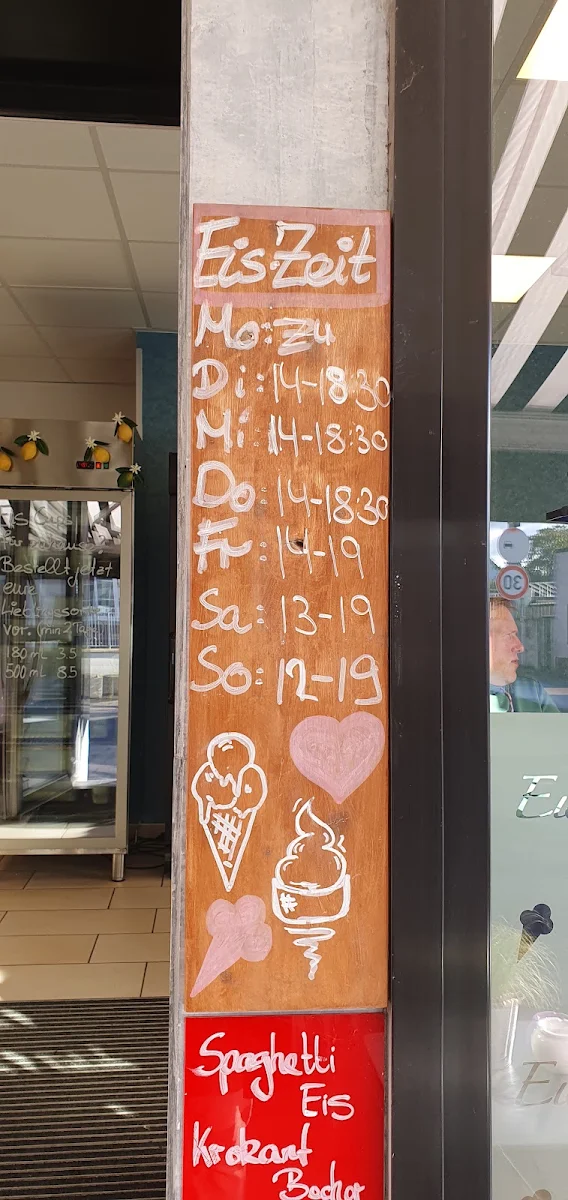 Eis Zeit
Mo: zu
Di: 14-18:30
Mi: 14-18:30
Do: 14-18:30
Fr: 14-19
Sa: 13-19
So: 12-19
Spaghetti
Eis
Krokant
Becher
Bestellt jetzt
eure
Lieblingssorte
vor. (min 2 Tage)
180 mL 3.5
500 mL 8.5
30